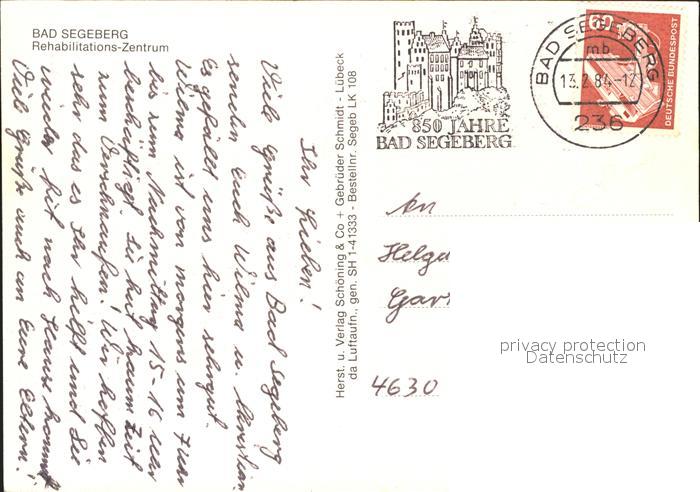 BAD SEGEBERG
Rehabilitations-Zentrum
Ihr Lieben!
Viele Grüße aus Bad Segeberg
senden Euch Wilma u. Christian
Es gefällt uns hier sehr gut.
Wilma ist von morgens um 7 Uhr
bis zum Nachmittag 15-16 Uhr
beschäftigt. Sie hat kaum Zeit
zum Verschnaufen! Wir hoffen
sehr das es Ihr hilft und Sie
wieder fit nach Hause kommt
Viele Grüße auch an Eure Eltern!
Herst. u. Verlag Schöning & Co + Gebrüder Schmidt - Lübeck
da Luftaufn., gen. SH 1-41333 - Bestellnr. Segeb LK 108
850 JAHRE
BAD SEGEBERG
BAD SEGEBERG
mb
13.2.84-12
236
60
DEUTSCHE BUNDESPOST
An
Helga
Gar
4630
privacy protection
Datenschutz